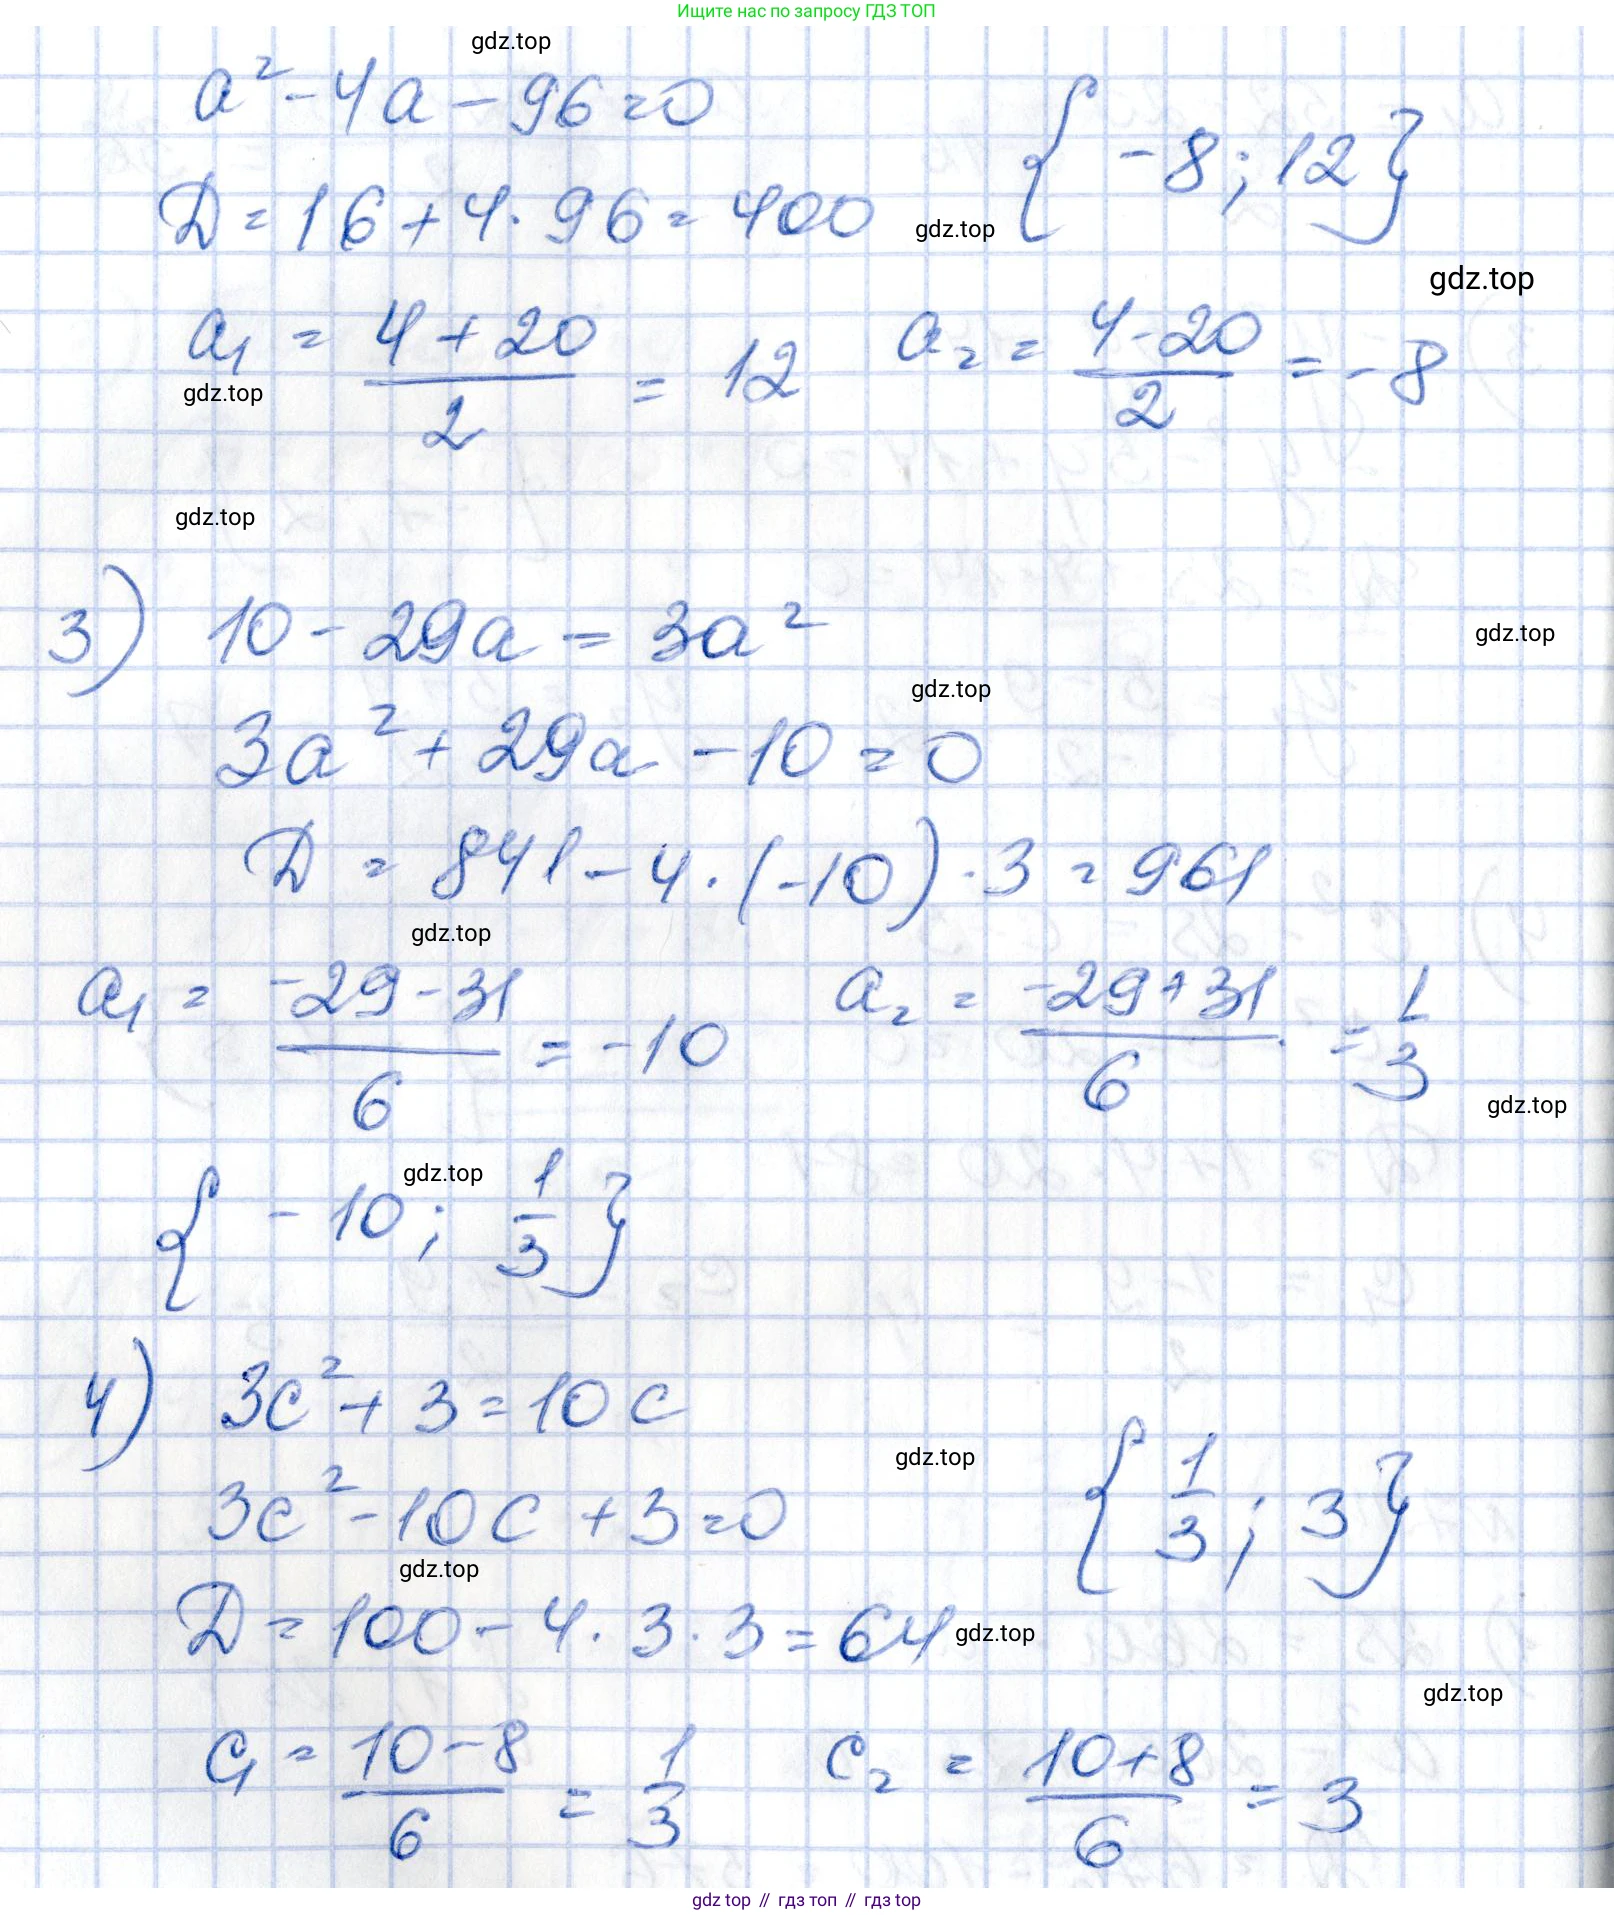 Ищите нас по запросу ГДЗ ТОП
gdz.top
a² - 4a - 96 = 0
{-8; 12}
D = 16 + 4 · 96 = 400
gdz.top
gdz.top
a₁ = (4 + 20)/2 = 12 a₂ = (4 - 20)/2 = -8
gdz.top
gdz.top
3) 10 - 29a = 3a²
gdz.top
gdz.top
3a² + 29a - 10 = 0
D = 841 - 4 · (-10) · 3 = 961
gdz.top
a₁ = (-29 - 31)/6 = -10 a₂ = (-29 + 31)/6 = 1/3
gdz.top
gdz.top
{-10; 1/3}
4) 3c² + 3 = 10c
gdz.top
3c² - 10c + 3 = 0 {1/3; 3}
gdz.top
D = 100 - 4 · 3 · 3 = 64
gdz.top
gdz.top
c₁ = (10 - 8)/6 = 1/3 c₂ = (10 + 8)/6 = 3
gdz top // гдз топ // гдз top